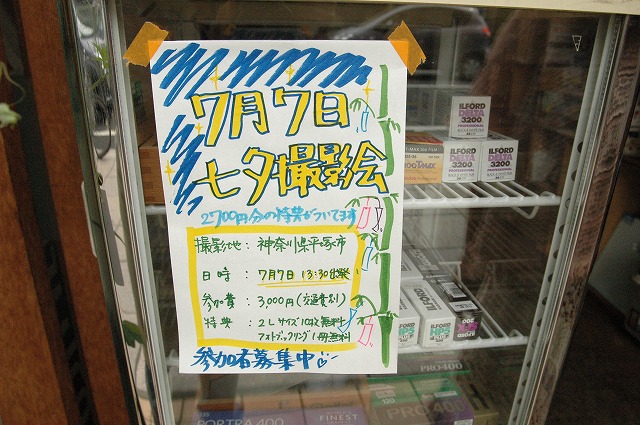 7月7日
七夕撮影絵
2700円分の特典がついてます
撮影地：神奈川県平塚市
日時：7月7日 13:30出発
参加費：3,000円(交通費別)
特典：2Lサイズ10枚無料
フォトブックリング1冊無料
参加者募集中
ILFORD
DELTA
3200
PROFESSIONAL
ILFORD
DELTA
3200
PROFESSIONAL
DELTA
3200
PROFESSIONAL
T-MAX
ILFORD
HP5
HP5
PRO400
PORTRA 400
FINEST
PRO400
120